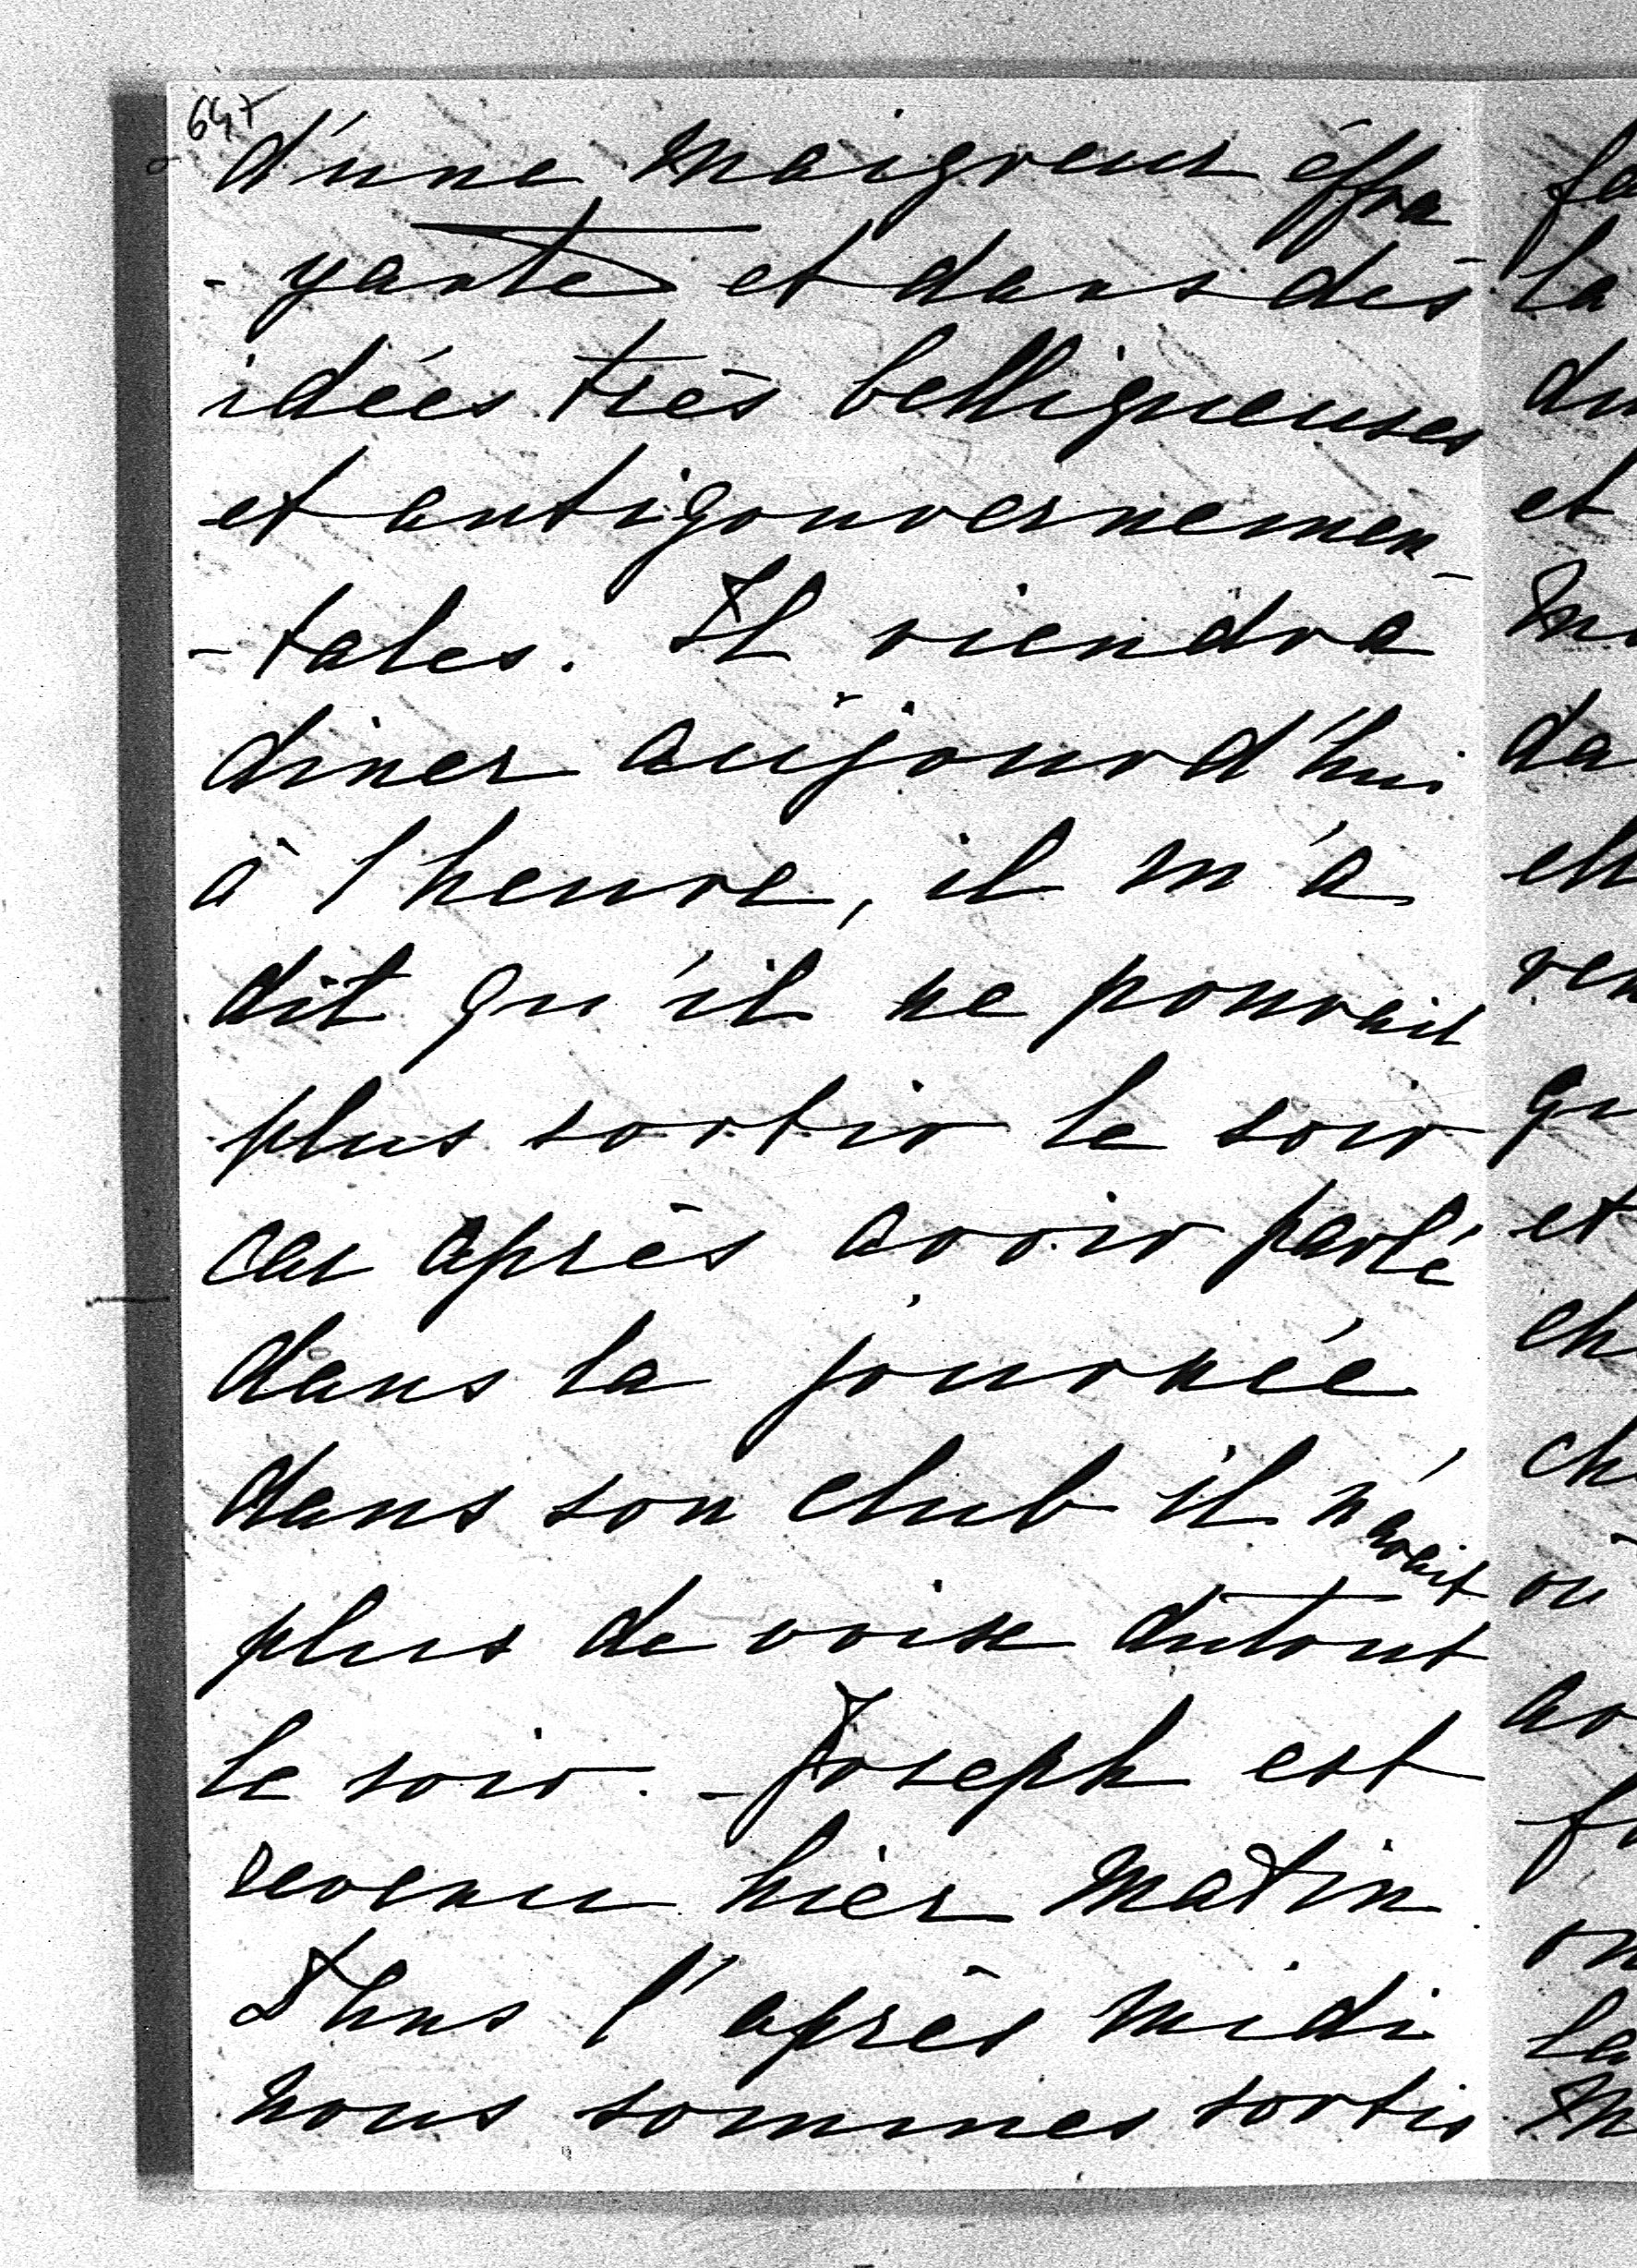 647
d'une maigreur éffra
- yante et dans des
idées très belliqueuses
et antigouvernemen-
- tales. Il viendra
diner aujourd'hui
à 1 heure, il m'a
dit qu'il ne pouvait
plus sortir le soir
car après avoir parlé
dans la journée
dans son club il n'avait
plus de voix dutout
le soir. - Joseph est
revenu hier matin
Dans l'après midi
nous sommes sortis